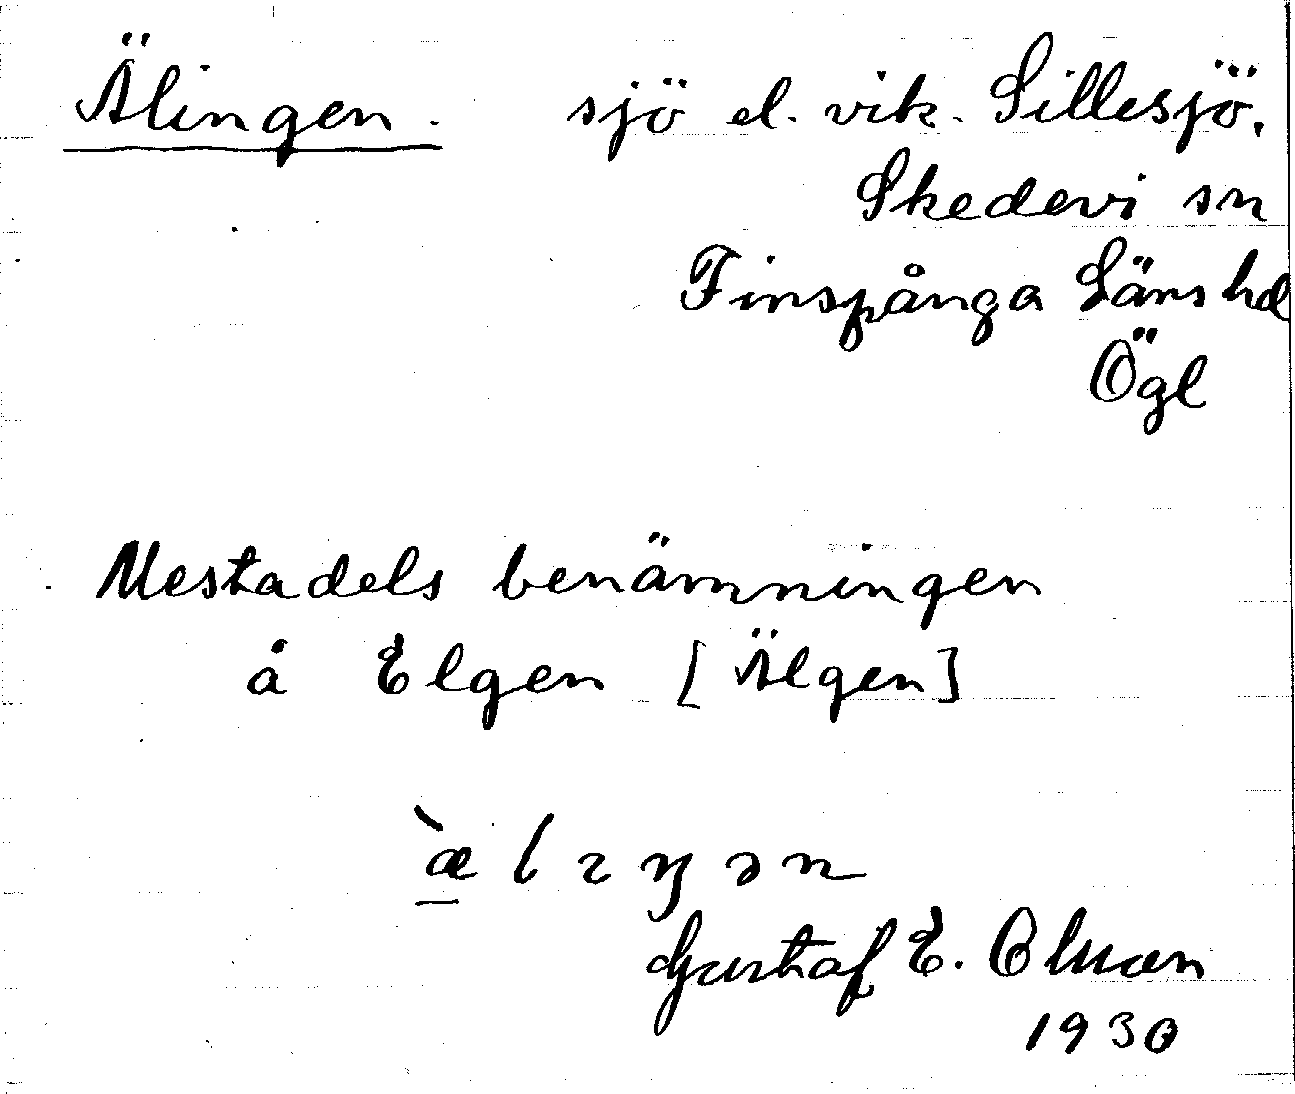 Älingen. sjö el. vik. Sillesjö.
Skedevi sn
Finspånga Läns hd
Ögl
Mestadels benämningen
å Elgen [Älgen]
æ̀lıŋən
Gustaf E. Olman
1930